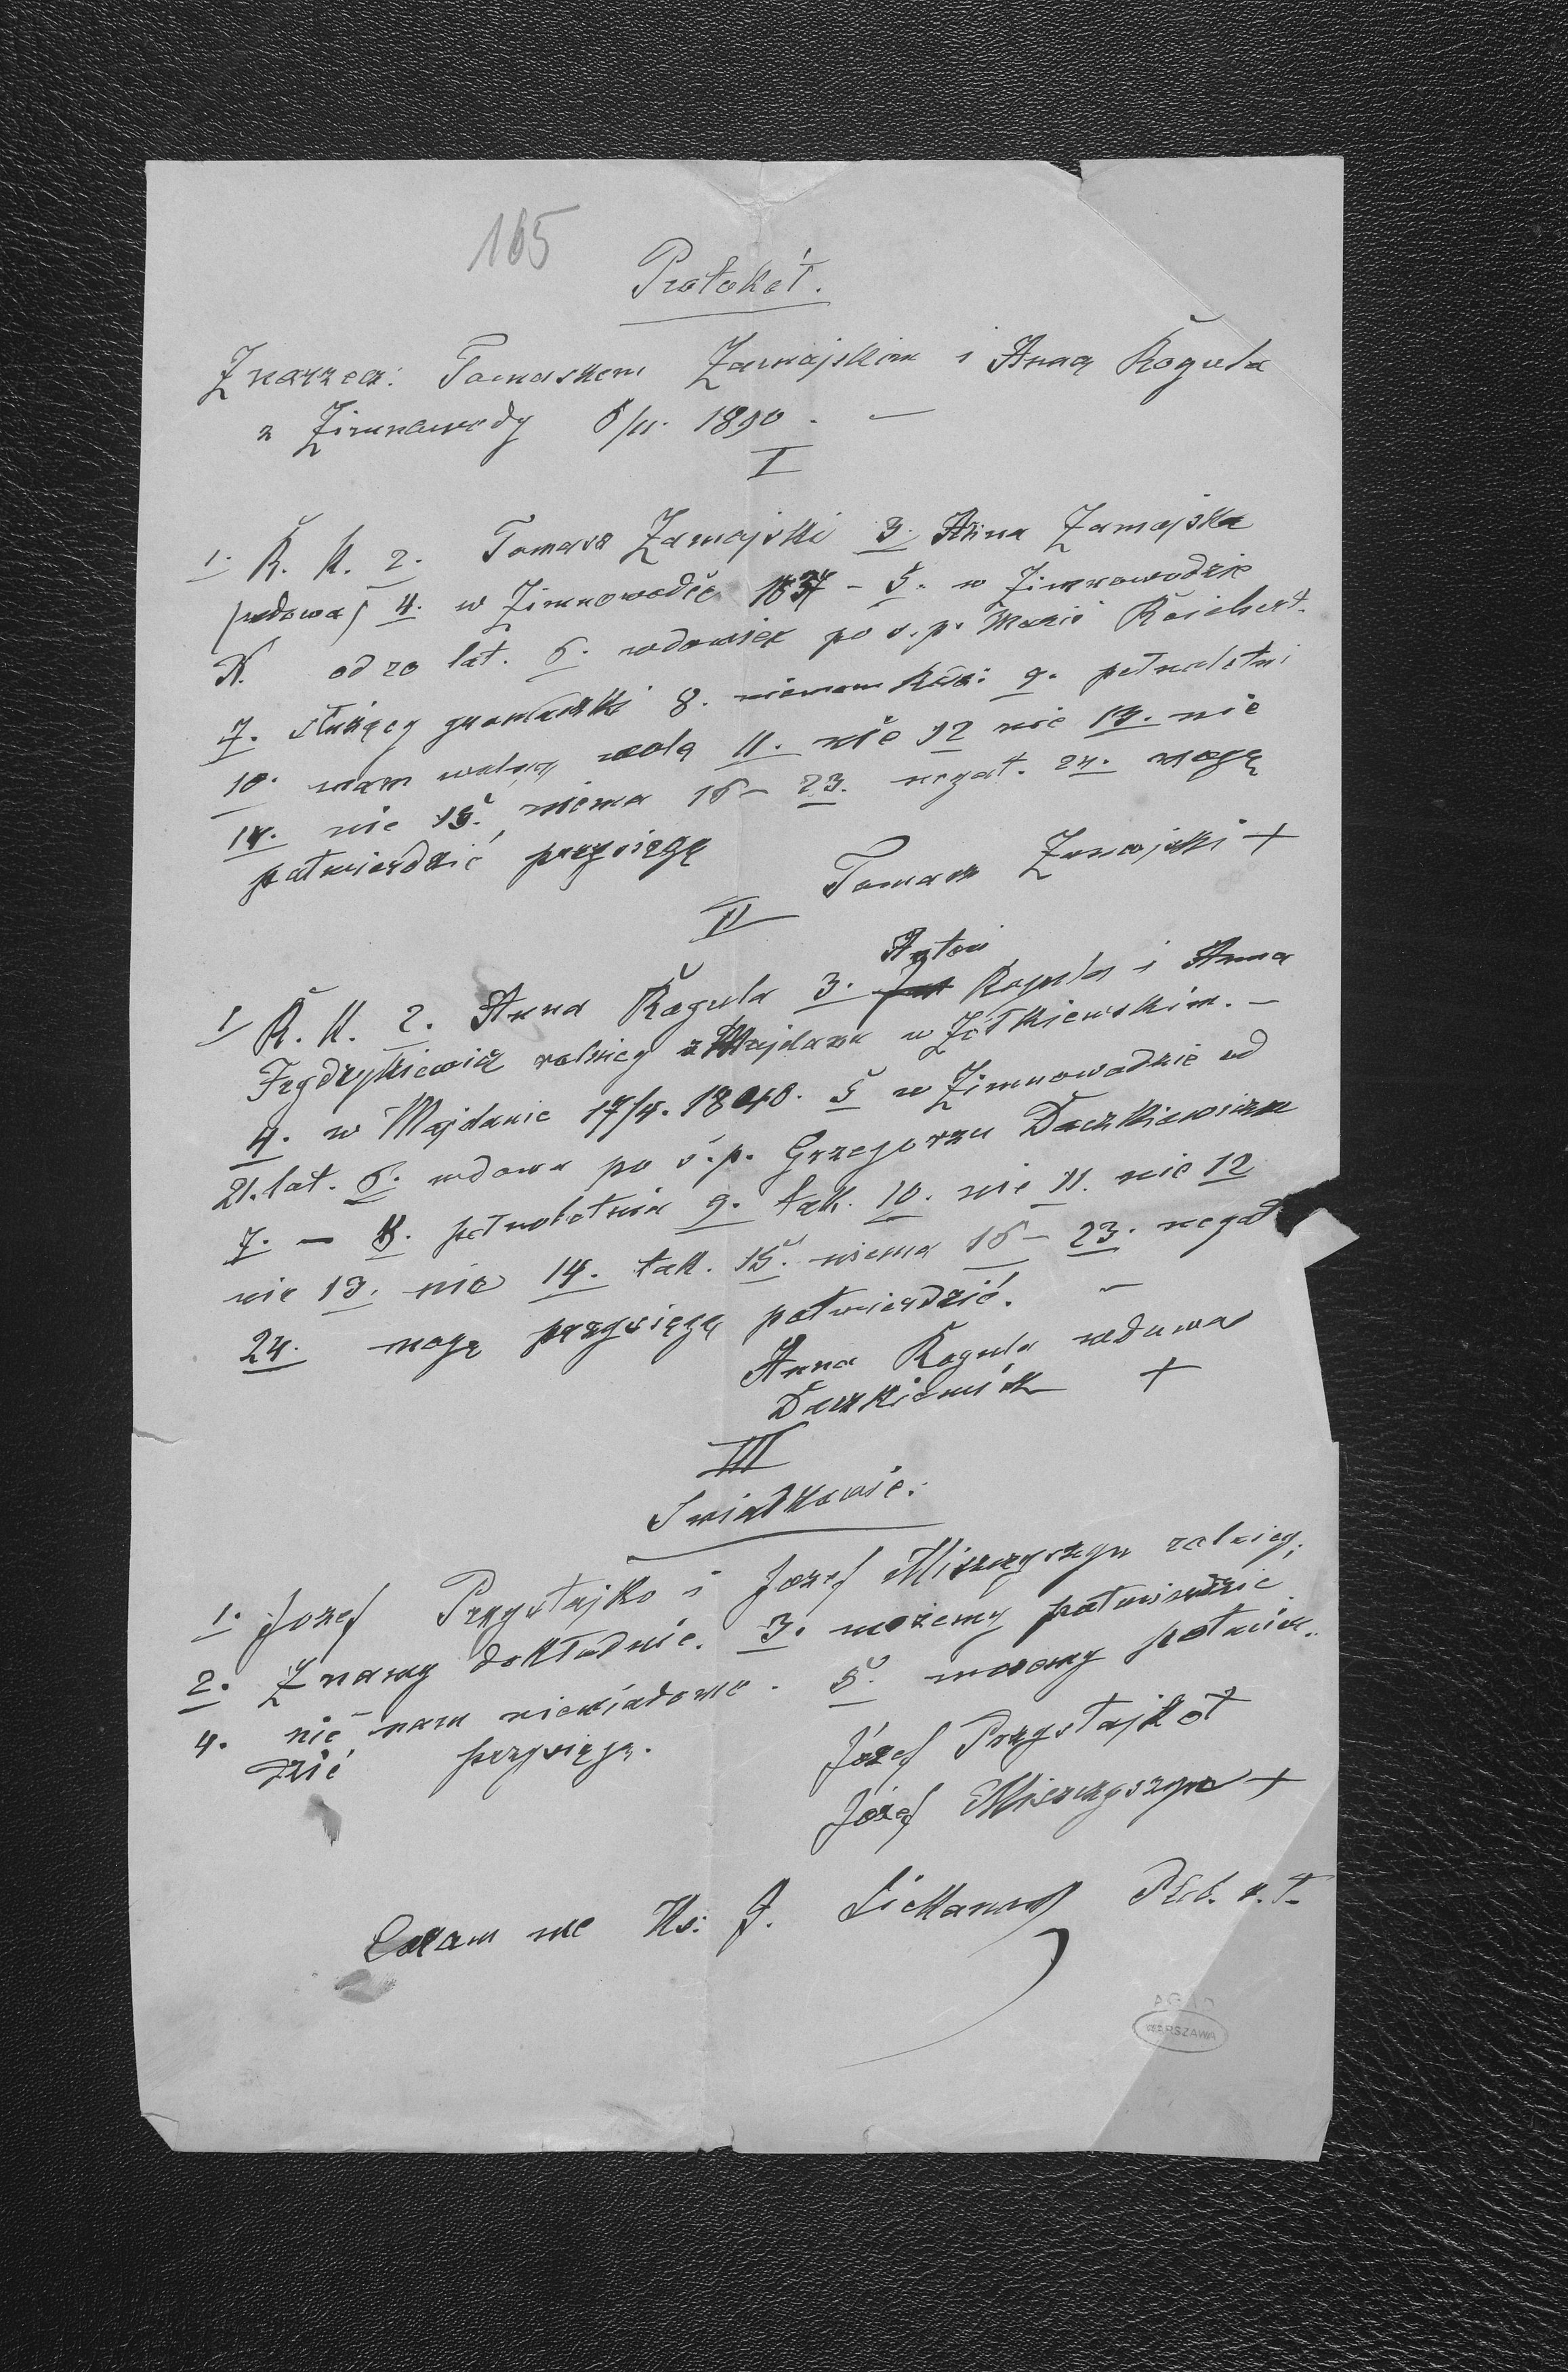 165
Protokół.
Znarzecz: Tomaszem Zamojskim i Anną Rogula
z Zimnawody 6/11. 1890. —
I
1. R. K. 2. Tomasz Zamojski 3. Anna Zamojska
(wdowa) 4. w Zimnowodzie - 5. w Zimnowodzie
N. od 20 lat. 6. wdowiec po ś. p. Marii Reichert.
7. służący gromadzki 8. 9. pełnoletni
10. mam wolną wolę 11. nie 12 nie 13. nie
14. nie 15. niema 16 - 23. negat. 24. mogę
potwierdzić przysięgą
Tomasz Zamojski +
II
Antoni
1 R. K. 2. Anna Rogula 3. Rogula i Anna
Frydrykiewicz rolnicy z Majdanu w Żółkiewskim. —
4. w Majdanie 17/4. 1840. 5 w Zimnowodzie od
21. lat. 6. wdowa po ś. p. Grzegorzu Daczkiewiczu
7. — 8. pełnoletnia 9. tak. 10. nie 11. nie 12
nie 13. nie 14. tak. 15. niema 16 - 23. negat
24. mogę przysięgą potwierdzić. —
Anna Rogula wdowa
Daczkiewicz +
III
Swiadkowie.
1. Jozef Przystajko i Jozef Misczyszyn rolnicy.
2. Znamy dokładnie. 3. możemy potwierdzić
4. nic nam niewiadomo. 5. mozemy potwier..
dzić przysięgą.
Józef Przystajko +
Józef Misczyszyn +
Coram me Ks: J. Pleb. r. ł.
AGAD
WARSZAWA